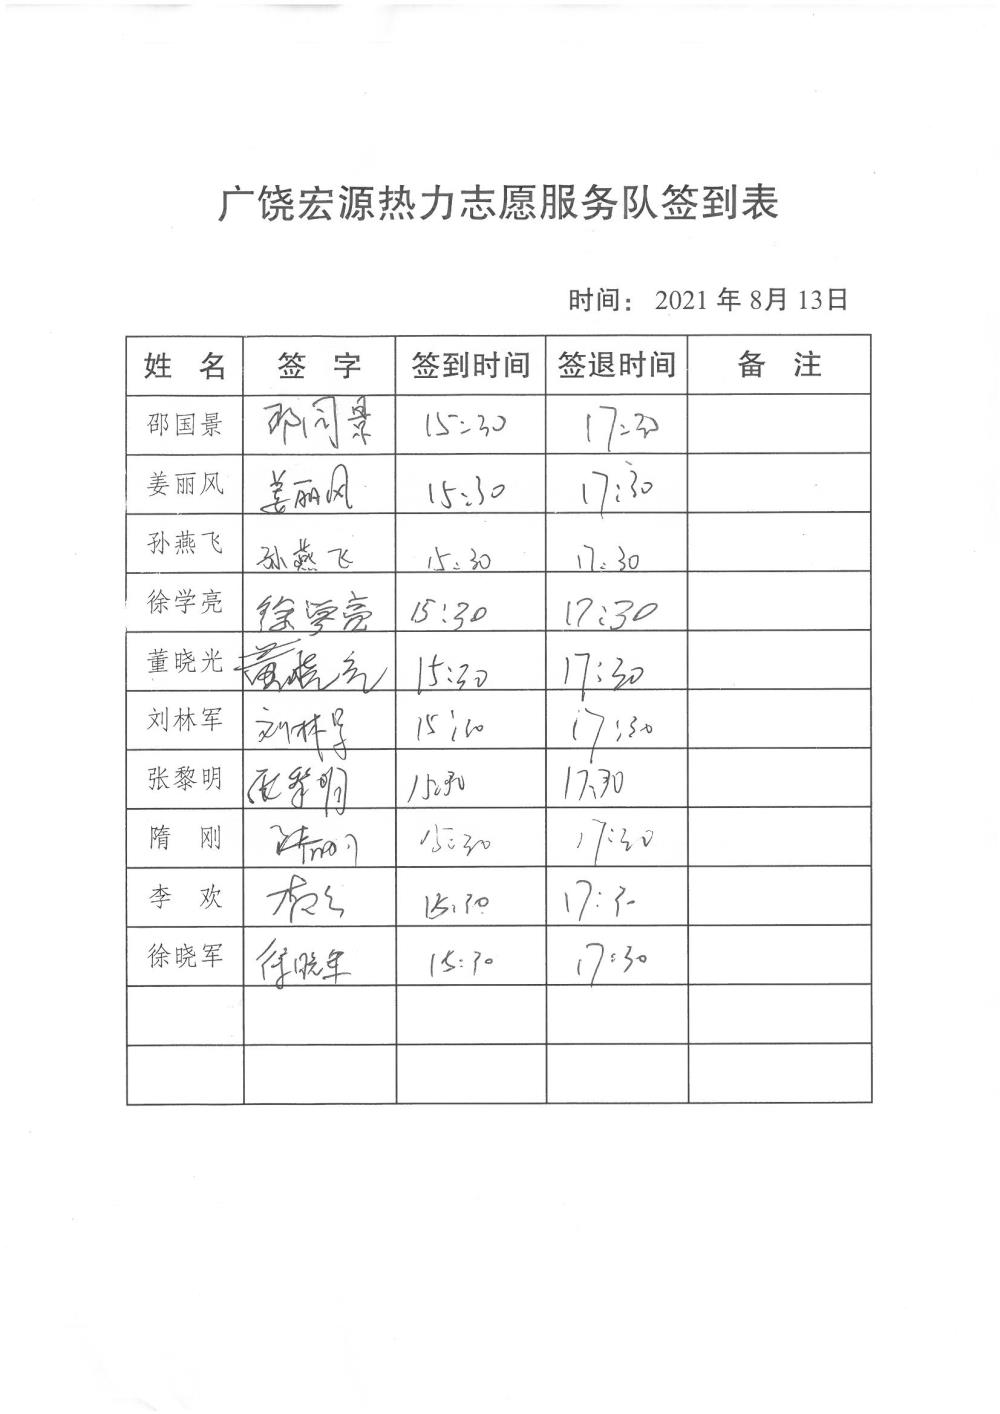 广饶宏源热力志愿服务队签到表
时间： 2021 年 8月 13日
姓 名 签 字 签到时间 签退时间 备 注
邵国景 邵国景 15:30 17:30
姜丽风 姜丽风 15:30 17:30
孙燕飞 孙燕飞 15:30 17:30
徐学亮 徐学亮 15:30 17:30
董晓光 董晓光 15:30 17:30
刘林军 刘林军 17:30
张黎明 张黎明 15:30 17:30
隋 刚 隋刚 15:30 17:30
李 欢 李欢 15:30 17:30
徐晓军 徐晓军 15:30 17:30